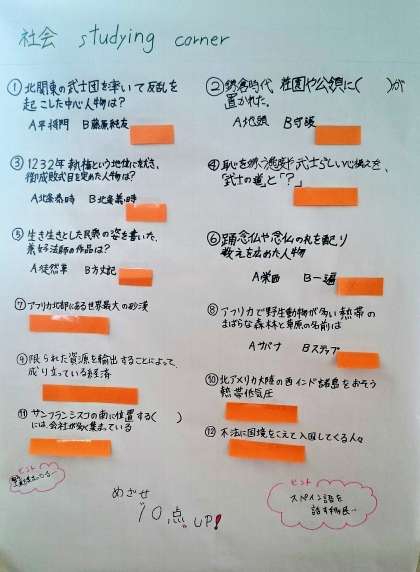 社会 studying corner
① 北関東の武士団を率いて反乱を
起こした中心人物は?
A平将門 B藤原純友
② 鎌倉時代 荘園や公領に( )が
置かれた。
A地頭 B守護
③ 1232年 執権という地位につき、
御成敗式目を定めた人物は?
A北条泰時 B北条義時
④ 恥を嫌う態度や武士らしい心構えを、
「武士の道」と「?」
⑤ 生き生きとした民衆の姿を書いた、
兼好法師の作品は?
A徒然草 B方丈記
⑥ 踊念仏や念仏の札を配り
教えを広めた人物
A栄西 B一遍
⑦ アフリカ北部にある世界最大の砂漠
⑧ アフリカで野生動物が多い熱帯の
まばらな森林と草原の名前は
Aサバナ Bステップ
⑨ 限られた資源を輸出することによって、
成り立っている経済
⑩ 北アメリカ大陸の西インド諸島をおそう
熱帯低気圧
⑪ サンフランシスコの南に位置する( )
には会社が多く集まっている
⑫ 不法に国境をこえて入国してくる人々
ヒント
めざせ
90点 UP!
ヒント
スペイン語を
話す移民…